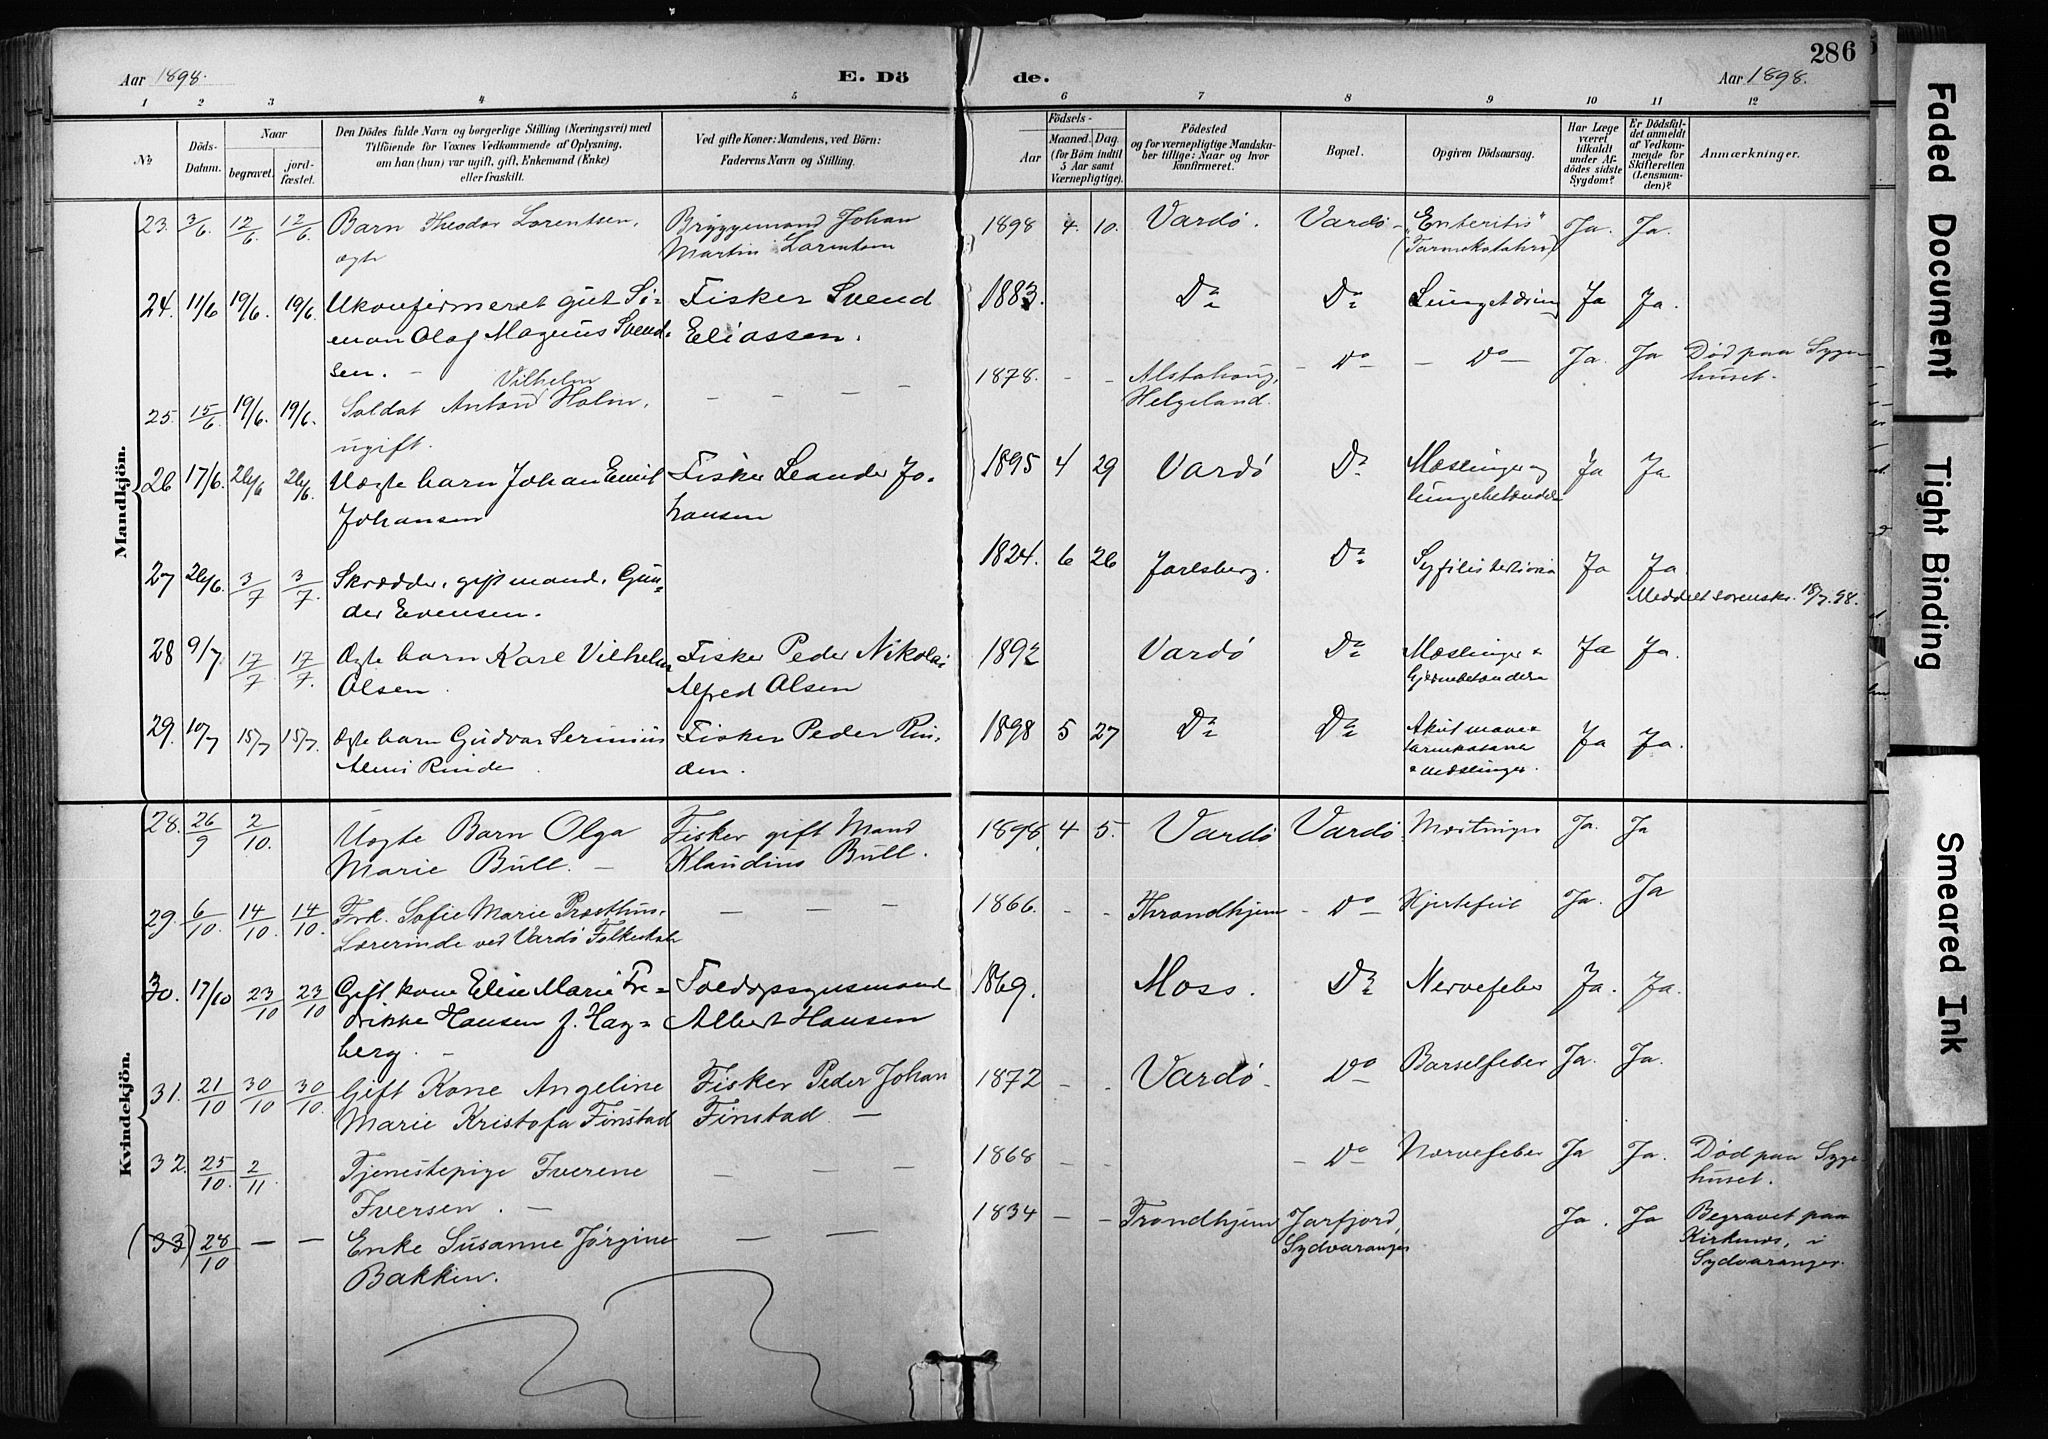 286
Aar 1898.
E. Dö
de.
Aar 1898.
1 2 3 4 5 6 7 8 9 10 11 12
No
Döds-
Datum.
Naar
begravet.
jord-
fæstet.
Den Dödes fulde Navn og borgerlige Stilling (Næringsvei) med
Tilföiende for Voxnes Vedkommende af Oplysning,
om han (hun) var ugift, gift, Enkemand (Enke)
eller fraskilt.
Ved gifte Koner: Mandens, ved Börn:
Faderens Navn og Stilling.
Födsels-
Aar
Maaned.
Dag.
(for Börn indtil
5 Aar samt
Værnepligtige).
Födested
og for værnepligtige Mandska-
ber tillige: Naar og hvor
konfirmeret.
Bopæl.
Opgiven Dödsaarsag.
Har Læge
været
tilkaldt
under Af-
dödes sidste
Sygdom?
Er Dödsfal-
det anmeldt
af Vedkom-
mende for
Skifteretten
(Lensman-
den)?
Anmærkninger.
Mandkjön.
23. 3/6. 12/6 12/6 Barn Theodor Lorentsen, Bryggemand Johan 1898 4. 10. Vardø. Vardø - "Enteritis" Ja. Ja.
ægte Martin Lorentsen (Tarmekatahrr)
24. 11/6 19/6. 19/6. Ukonfirmeret gut Si- Fisker Svend 1883. Do Do Lungetæring Ja Ja.
mon Olaf Magnus Svend- Eliassen.
sen. -
25. 15/6 19/6. 19/6. Soldat Anton Vilhelm Holm, - - - - 1878. - - Alstahoug, - Do - Do - Ja. Ja Død paa Syge-
ugift. Helgeland. huset.
26 17/6. 26/6 26/6. Uægte barn Johan Emil Fisker Leander Jo- 1895 4 29 Vardö Do Mæslinger og Ja Ja
Johansen hansen lungebetændelse
27 26/6. 3/7 3/7. Skrædder, gift mand, Gun- 1824. 6 26 Jarlsberg. Do Syfilis tertiaria Ja Ja
der Evensen. Meddelt sorenskr. 18/7.98.
28 9/7 17/7 17/7. Ægte barn Karl Vilhelm Fisker Peder Nikolai 1892 Vardö Do Mæslinger & Ja Ja.
Olsen. Alfred Olsen Hjernebetændelse
29. 10/7 15/7 15/7. Ægte barn Gudvar Serinius Fisker Peder Rin- 1898 5 27 Do Do Akut mave & Ja Ja.
Almi Rinde. den. tarmkatarr
& mæslinger.
Kvindekjön.
28. 26/9 2/10. Uægte Barn Olga Fisker gift Mand 1898. 4 5. Vardø Vardø. Mæslinger Ja. Ja
Marie Bull. - Klaudius Bull.
29. 6/10. 14/10 14/10. Frk. Sofie Marie Præsthus, - - - 1866. - - Throndhjem - Do - Hjertefeil Ja. Ja
Lærerinde ved Vardø Folkeskole
30. 17/10 23/10 23/10 Gift kone Elise Marie Fre- Toldopsynsmand 1869. Moss. Do Nervefeber Ja. Ja.
drikke Hansen f. Hag- Albert Hansen
berg. -
31. 21/10 30/10 30/10. Gift Kone Angeline Fisker Peder Johan 1872 - - Vardø. Do Barselfeber Ja. Ja.
Marie Kristofa Finstad Finstad -
32. 25/10. 2/11 Tjenestepige Iverene - - - 1868 - - - Do Nervefeber Ja Ja. Død paa Syge-
Iversen. - huset.
(33) 28/10 - - Enke Susanne Jørgine - - 1834 - - Trondhjem Jarfjord, Ja. Ja Begravet paa
Bakken. Sydvaranger Kirknes, i
Sydvaranger.
Faded Document
Tight Binding
Smeared Ink